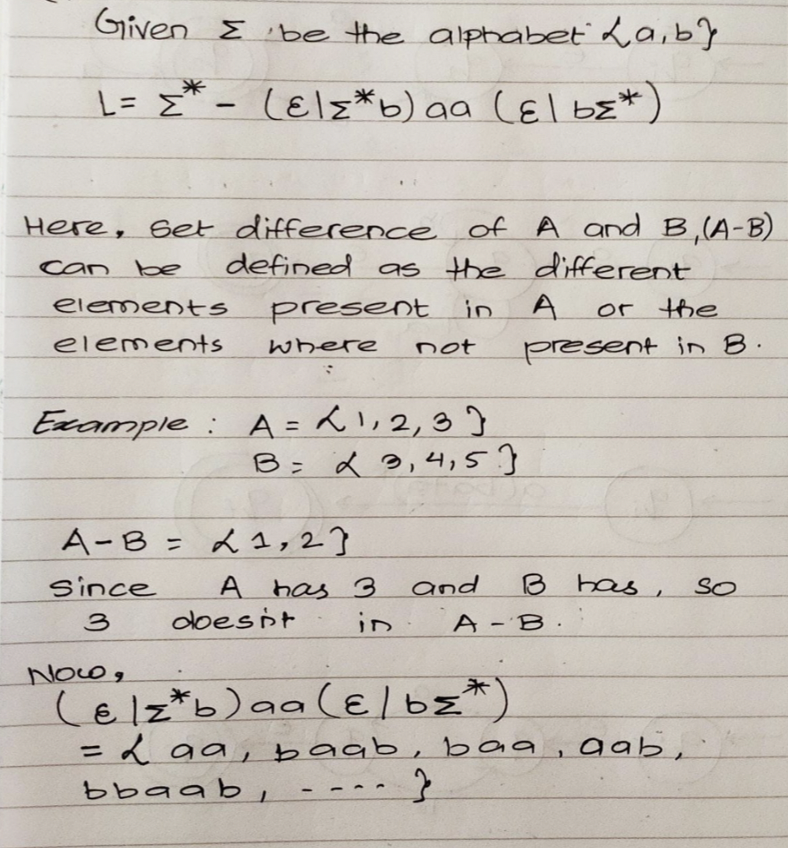 Given Σ be the alphabet {a,b}
L = Σ* - (ε|Σ*b) aa (ε|bΣ*)
Here, Set difference of A and B,(A-B)
can be defined as the different
elements present in A or the
elements where not present in B.
Example : A = {1,2,3}
B = {3,4,5}
A-B = {1,2}
Since A has 3 and B has, so
3 doesn't in A-B.
Now,
(ε|Σ*b)aa(ε|bΣ*)
= {aa, baab, baa, aab,
bbaab, ---- }